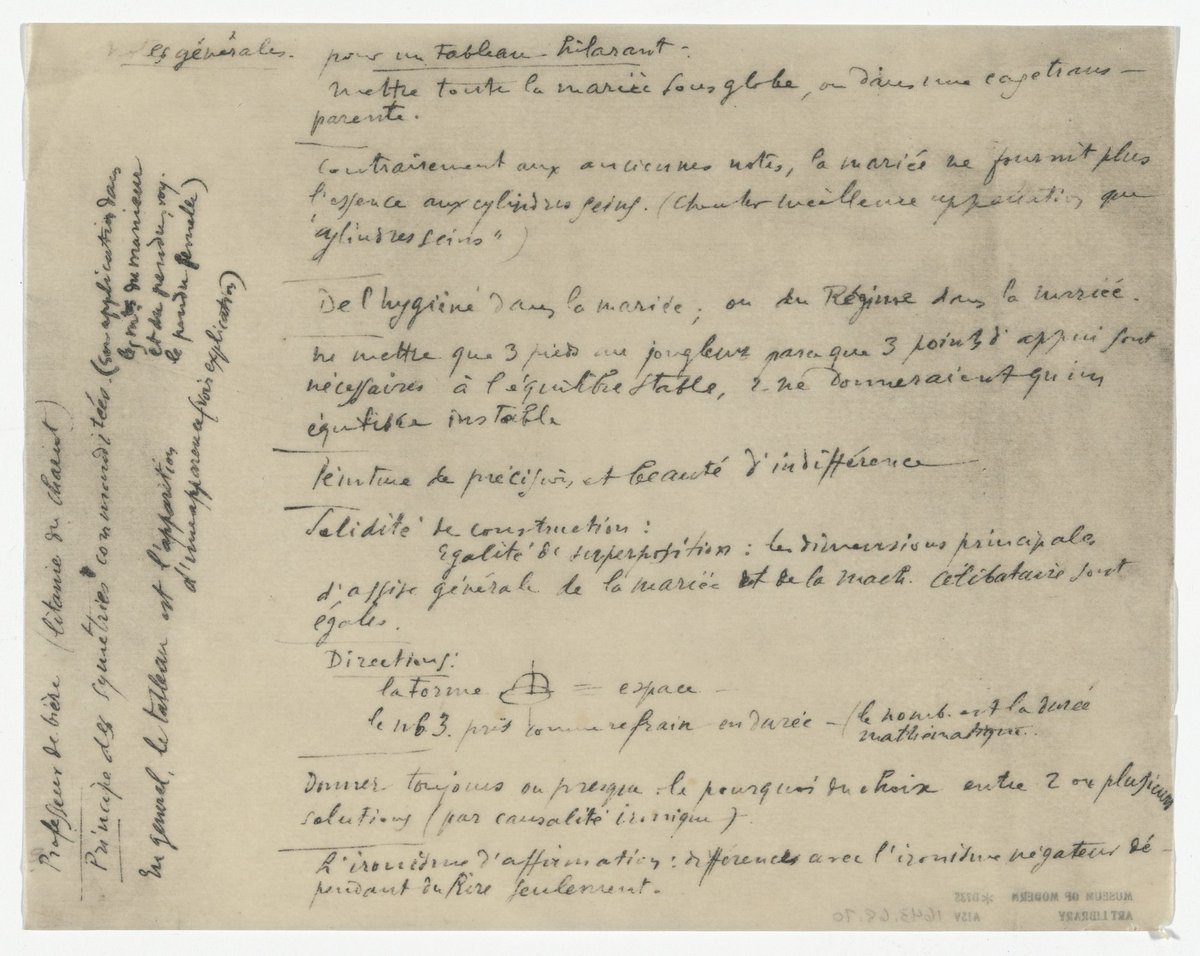 es générales. pour un Tableau-hilarant -
mettre toute la mariée sous globe, ou dans une cage trans-
parente.
Contrairement aux anciennes notes, la mariée ne fournit plus
l'essence aux cylindres seins. (chercher meilleure appellation que
"cylindres seins")
De l'hygiène dans la mariée; ou du Régime dans la mariée.
ne mettre que 3 pieds au jongleur parce que 3 points d'appui sont
nécessaires à l'équilibre stable, 2 ne donneraient qu'un
équilibre instable
Peinture de précision, et beauté d'indifférence
Solidité de construction :
Egalité de superposition : les dimensions principales
d'assise générale de la mariée et de la mach. célibataire sont
égales.
Directions:
la forme = espace -
le nb 3. pris comme refrain en durée - (le nomb. est la durée
mathématique.
Donner toujours ou presque le pourquoi du choix entre 2 ou plusieurs
solutions (par causalité ironique).
L'ironisme d'affirmation : différences avec l'ironisme négateur dé-
pendant du Rire seulement.
Professeur de bière (litanie du chariot)
Principe des symétries commanditées. (son application dans
les du manieur
et du pendu, voy.
le pendu femelle)
En général, le tableau est l'apparition
d'une apparence (voir explication)
MUSEUM OF MODERN
ART LIBRARY
*D73S
A12V 1643.68.70